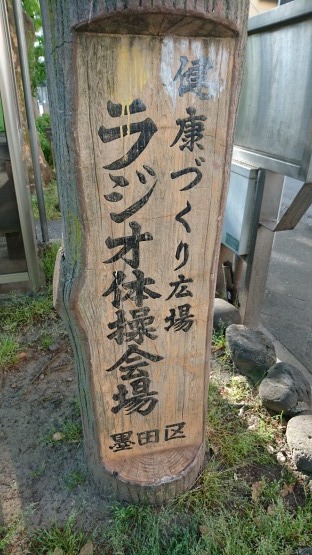 健康づくり広場
ラジオ体操会場
墨田区